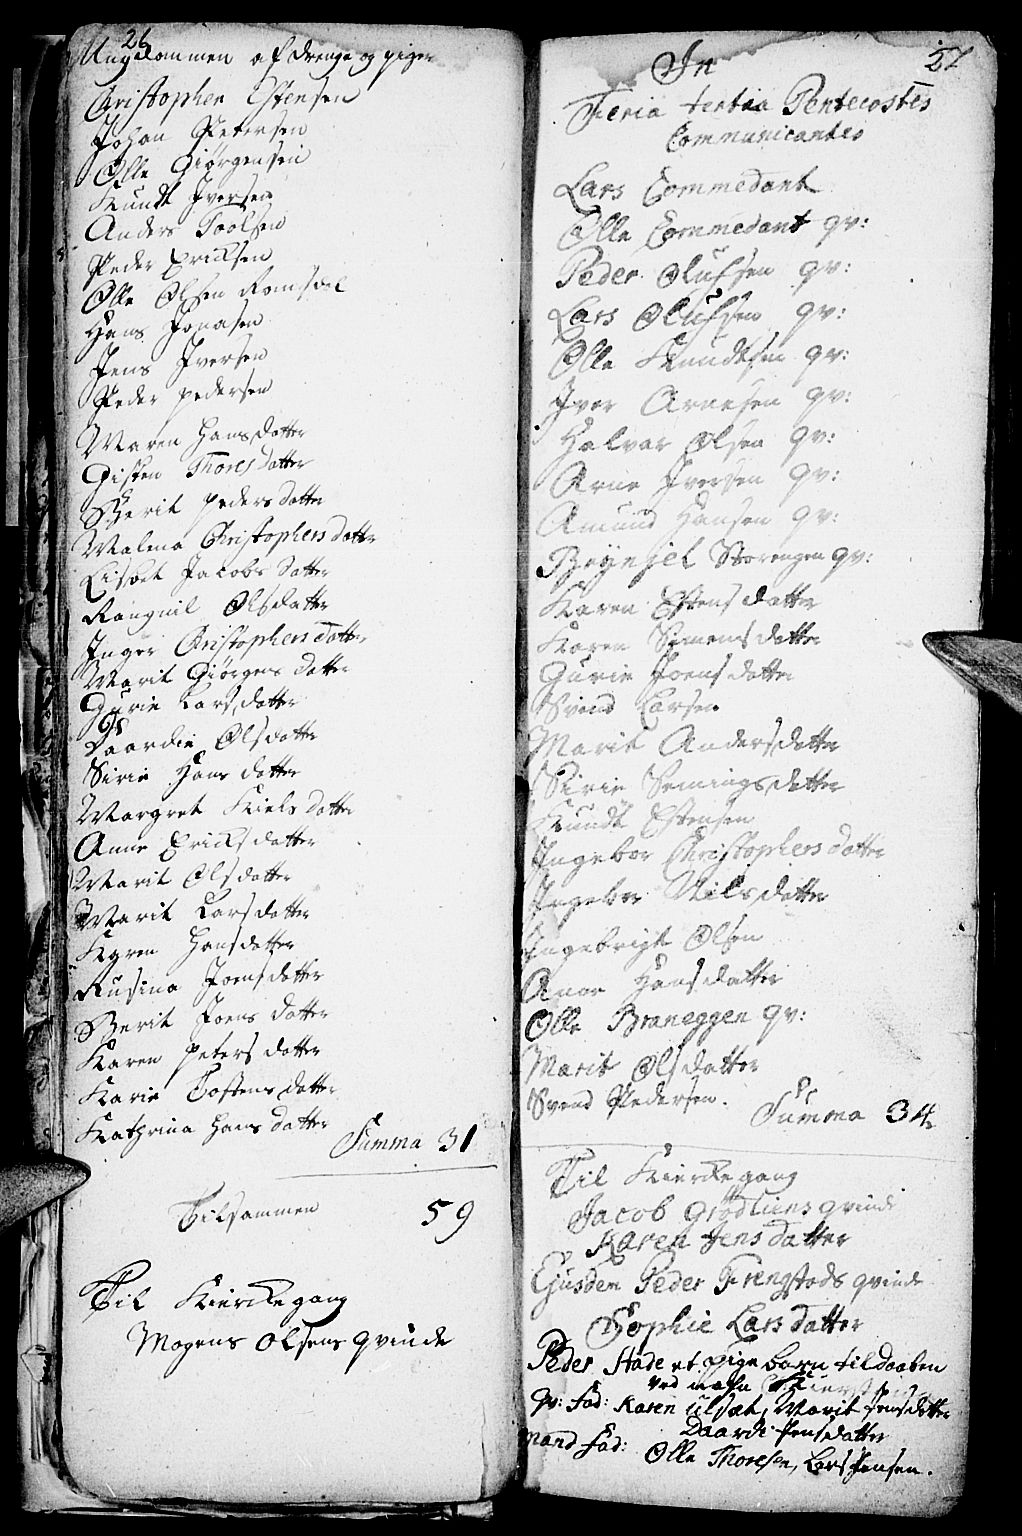 26
Ungdommen af drenge og piger
Christopher Estensen
Johan Petersen
Olle Giørgensen
Knudt Iversen
Anders Poolsen
Peder Ericksen
Olle Olsen Romsdal
Hans Jonasen
Jens Iversen
Peder pedersen
Maren Hansdatter
Gisken Thoresdatter
Berit pedersdatter
Malena Christophersdatter
Lisbet Jacobsdatter
Rangnil Olsdatter
Inger Christophersdatter
Marit Giørgensdatter
Gurie Larsdatter
Daardie Olsdatter
Sirie Hansdatter
Margret Kielsdatter
Anne Ericksdatter
Marit Olsdatter
Marit Larsdatter
Karen Hansdatter
Rusina Joensdatter
Berit Joensdatter
Karen petersdatter
Karie Tostensdatter
Kathrina Hansdatter
Summa 31
Tilsammen 59
Til Kierckegang
Mogens Olsens qvinde
27
In
Feria tertia Pentecostes
Communicantes
Lars Commedant
Olle Commedant qv:
Peder Olufsen qv:
Lars Olufsen qv:
Olle Knudtsen qv:
Iver Arnesen qv:
Halvor Olsen qv:
Arne Iversen qv:
Amund Hansen qv:
Brynjel Storengen qv:
Karen Estensdatter
Karen Simensdatter
Gurie Joensdatter
Svend Larsen
Marit Andersdatter
Sirie Semingsdatter
Knudt Estensen
Ingebor Christophersdatter
Ingebor Nilsdatter
Ingebrigt Olsen
Anne Hansdatter
Olle Braneggen qv:
Marit Olsdatter
Svend Pedersen.
Summa 34
Til Kierckegang
Jacob Grødtiens qvinde
Karen Jensdatter
Ejusdem Peder Frengstads qvinde
Sophie Larsdatter
Peder Stade et pige barn til daaben
ved nafn
qv: fad: Karen Ulsæt, Marit Jensdatter
Daardi Jensdatter
mand fad: Olle Thoresen, Lars Jensen.